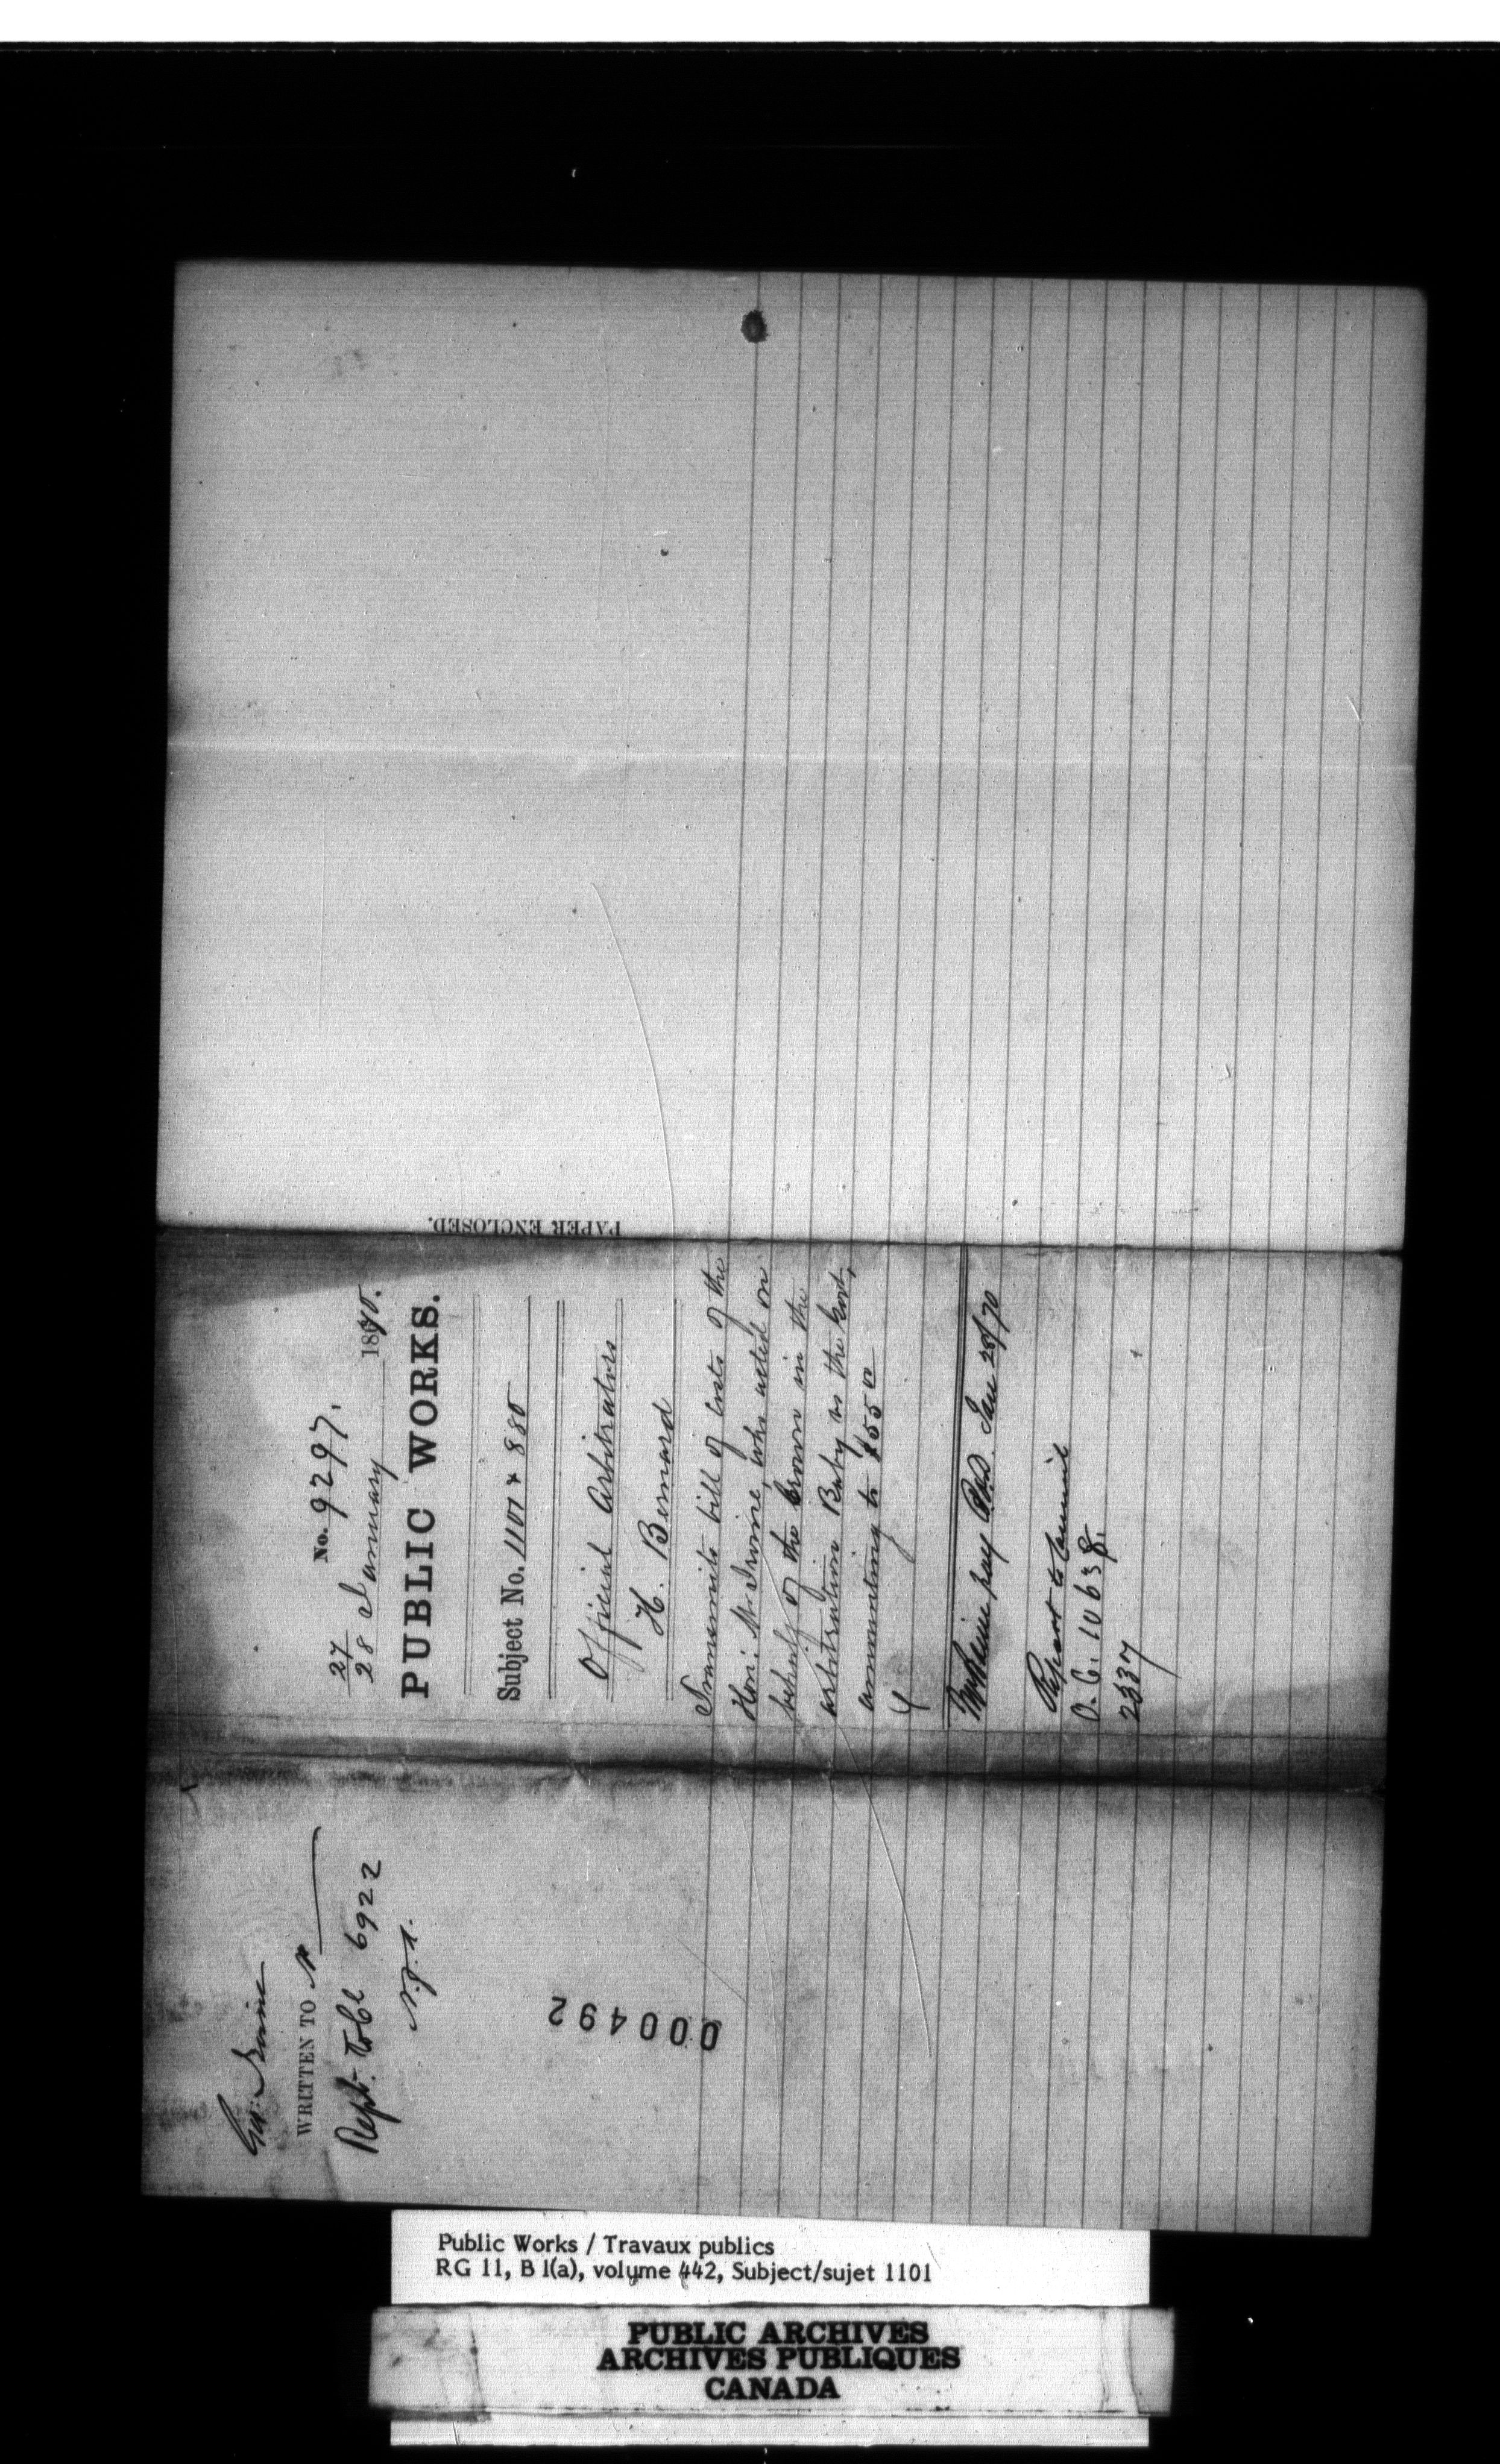 No. 9297.
27
28 January 1870.
PUBLIC WORKS.
Subject No. 1101 & 880
Official Arbitrators
H. Bernard
Transmits bill of costs of the
Hon: Mr Irvine, who acted on
behalf of the Crown in the
arbitration Baby vs the Govt,
amounting to $55 00
pay Jan 28/70
Report to Council
O.C. 10638.
2337
PAPER ENCLOSED.
Geo: Irvine
WRITTEN TO
Rept. 6922
000492
Public Works / Travaux publics
RG 11, B 1(a), volume 442, Subject/sujet 1101
PUBLIC ARCHIVES
ARCHIVES PUBLIQUES
CANADA